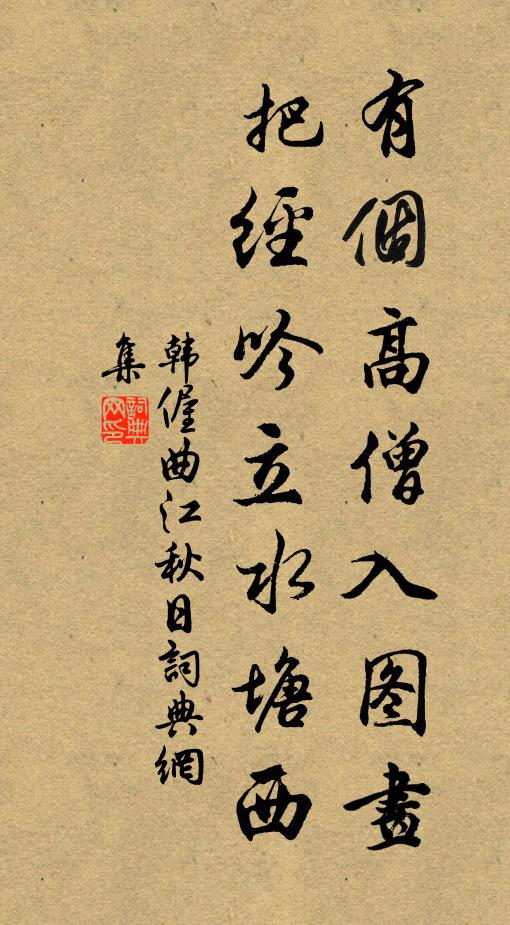 有個高僧入图畫
把經吟立水塘西
韩偓曲江秋日詞典網
集
詞典网印